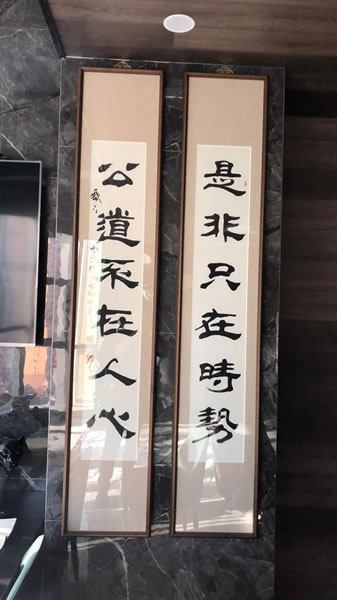 是非只在時勢
公道不在人心